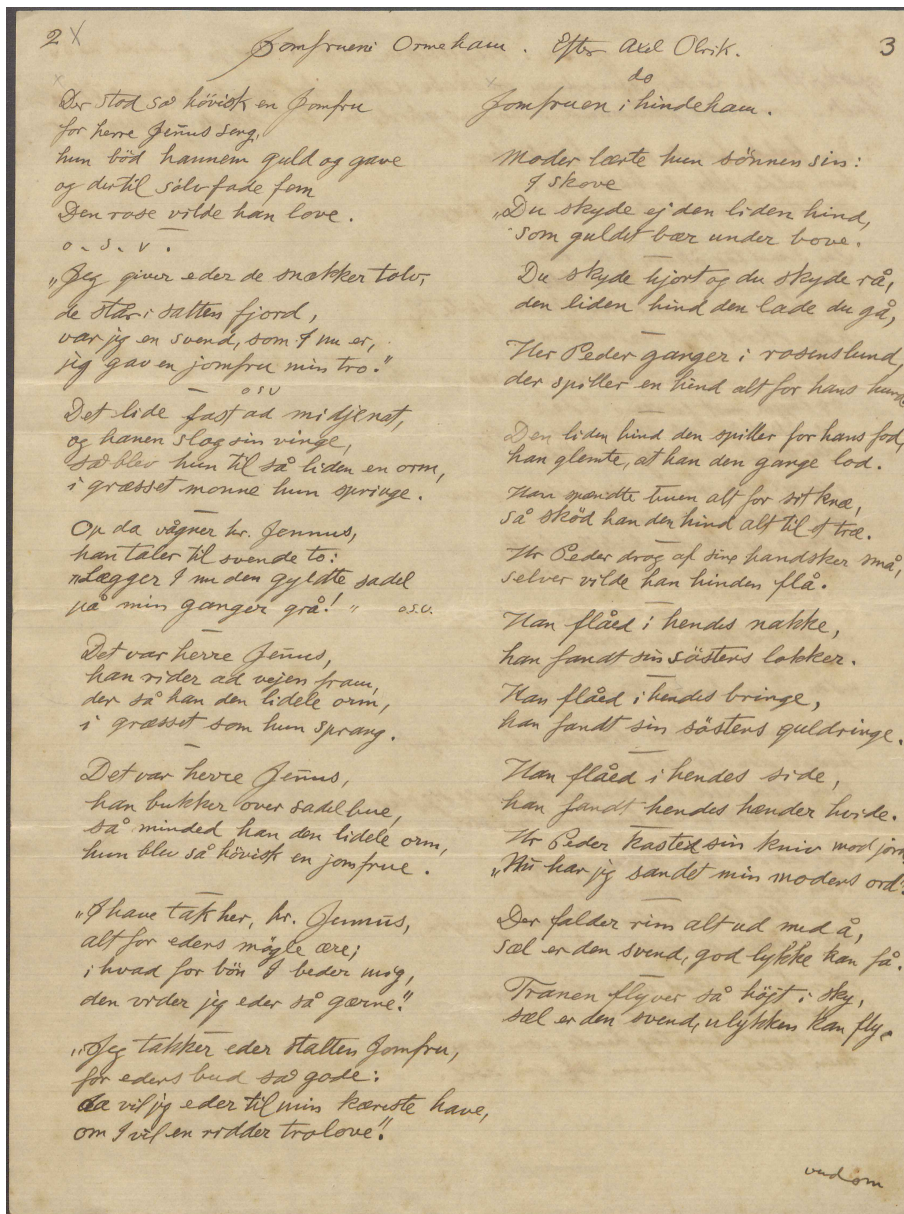 2 X
Jomfruen i Ormeham. Efter Axel Olrik.
Der stod så hövisk en Jomfru
for herre Jen̄us seng,
hun böd hannem guld og gave
og dertil sölvfade fem
Den rose vilde han love.
o. s. v.
"Jeg giver eder de snækker tolv,
de står i salten fjord,
var jeg en svend, som I nu er,
jeg gav en jomfru min tro."
o s v
Det lide fast ad midjenat,
og hanen slog sin vinge,
så blev hun til så liden en orm,
i græsset monne hun springe.
Op da vågner hr. Jennus,
han taler til svende to:
"Lægger I nu den gyldte sadel
på min ganger grå!" o.s.v.
Det var herre Jen̄us,
han rider ad vejen fram,
der så han den lidele orm,
i græsset som hun sprang.
Det var herre Jen̄us,
han bukker over sadelbue,
så minded han den lidele orm,
hun blev så hövisk en jomfrue.
"I have tak her, hr. Jennus,
alt for eders mögle ære;
i hvad for bön I beder mig,
den vider jeg eder så gærne."
"Jeg takker eder stalten Jomfru,
for eders bud så gode:
da vil jg eder til min kæreste have,
om I vil en ridder trolove."
3
do
Jomfruen i hindeham.
Moder lærte hun sönnen sin:
I skove
"Du skyde ej den liden hind,
som guldet bær under bove.
Du skyde hjort og du skyde rå,
den liden hind den lade du gå,
Her Peder ganger i rosenslund,
der spiller en hind alt for hans hund
Den liden hind den spiller for hans fod,
han glemte, at han den gange lod.
Han spændte buen alt for sit knæ,
så sköd han den hind alt til et træ.
Hr Peder drog af sine handsker små,
selver vilde han hinden flå.
Han flåed i hendes nakke,
han fandt sin sösters lokker.
Han flåed i hendes bringe,
han fandt sin sösters guldringe.
Han flåed i hendes side,
han fandt hendes hænder hvide.
Hr Peder kasted sin kniv mod jord
"Nu har jeg sandet min moders ord".
Der falder rim alt ud med å,
sæl er den svend, god lykke kan få.
Tranen flyver så höjt i sky,
sæl er den svend, ulykken kan fly.
vend om